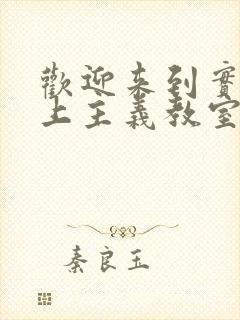 歡迎來到實
上主義教室
秦良玉